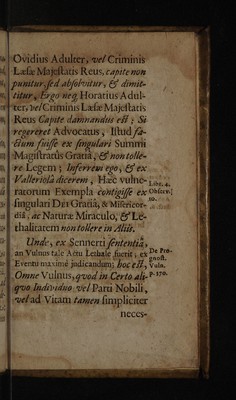 Ovidius Adulter, vel Criminis
Læsæ Majestatis Reus, capite non
punitur, sed absolvitur, & dimit-
titur, Ergo neq; Horatius Adul-
ter, vel Criminis Læsæ Majestatis
Reus Capite damnandus est; Si
regereret Advocatus, Istud fa-
ctum fuisse ex singulari Summi
Magistratûs Gratiâ, & non tolle-
re Legem; Inferrem ego, & ex
Valleriola dicerem, Hæc vulne-
ratorum Exempla contigisse ex
singulari Dei Gratiâ, & Misericor-
diâ, ac Naturæ Miraculo, & Le-
thalitatem non tollere in Aliis.
Libr. 4.
Observ.
10.
Unde, ex Sennerti sententiâ,
an Vulnus tale Actu Lethale fuerit, ex
Eventu maximè judicandum; hoc est,
Omne Vulnus, qvod in Certo ali-
qvo Individuo vel Parti Nobili,
vel ad Vitam tamen simpliciter
De Pro-
gnost.
Vuln.
p. 570.
neces-